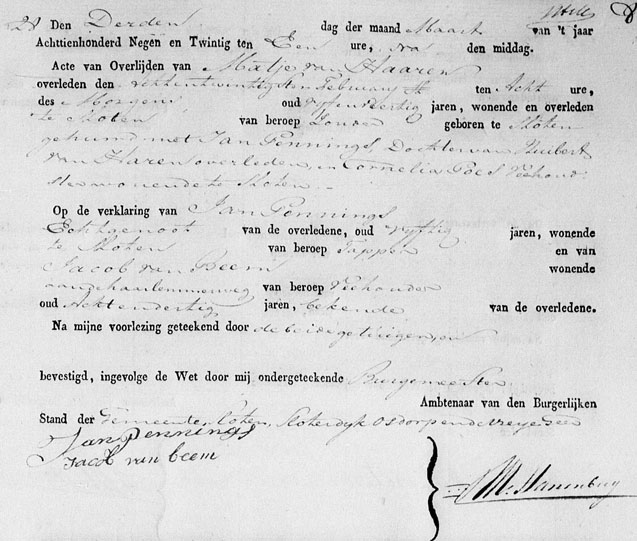 Den Derden dag der maand Maart van 't jaar
Achttienhonderd Negen en Twintig ten Een ure, na den middag.
Acte van Overlijden van Maatje van Haaren
overleden den Februarij ten Acht ure,
des Morgens oud vyfenveertig jaren, wonende en overleden
te Sloten van beroep Zonder geboren te Sloten
gehuwd met Jan Pennings, Dochter van Huibert
van Haren overleden, en Cornelia Poes Veehoud-
ster wonende te Sloten.
Op de verklaring van Jan Pennings
Echtgenoot van de overledene, oud vyftig jaren, wonende
te Sloten van beroep Tapper en van
Jacob van Beem wonende
aan de haarlemmerweg van beroep Veehouder
oud Achtendertig jaren, bekende van de overledene.
Na mijne voorlezing geteekend door de beide getuigen, en
bevestigd, ingevolge de Wet door mij ondergeteekende Burgemeester
Ambtenaar van den Burgerlijken
Stand der Gemeente Sloten, Sloterdyk Osdorp en de vrye Geer
Jan Pennings
Jacob van beem